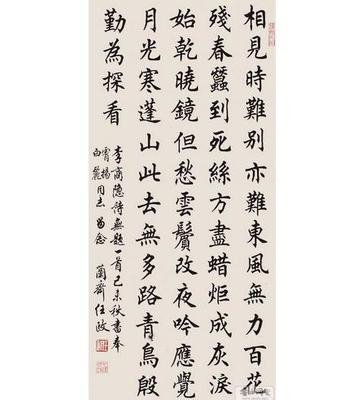 相見時難別亦難東風無力百花
殘春蠶到死絲方盡蜡炬成灰淚
始乾曉鏡但愁雲鬢改夜吟應覺
月光寒蓬山此去無多路青鳥殷
勤為探看
李商隐詩無題一首己未秋書奉
霄揚
白麗同志留念
蘭齋任政